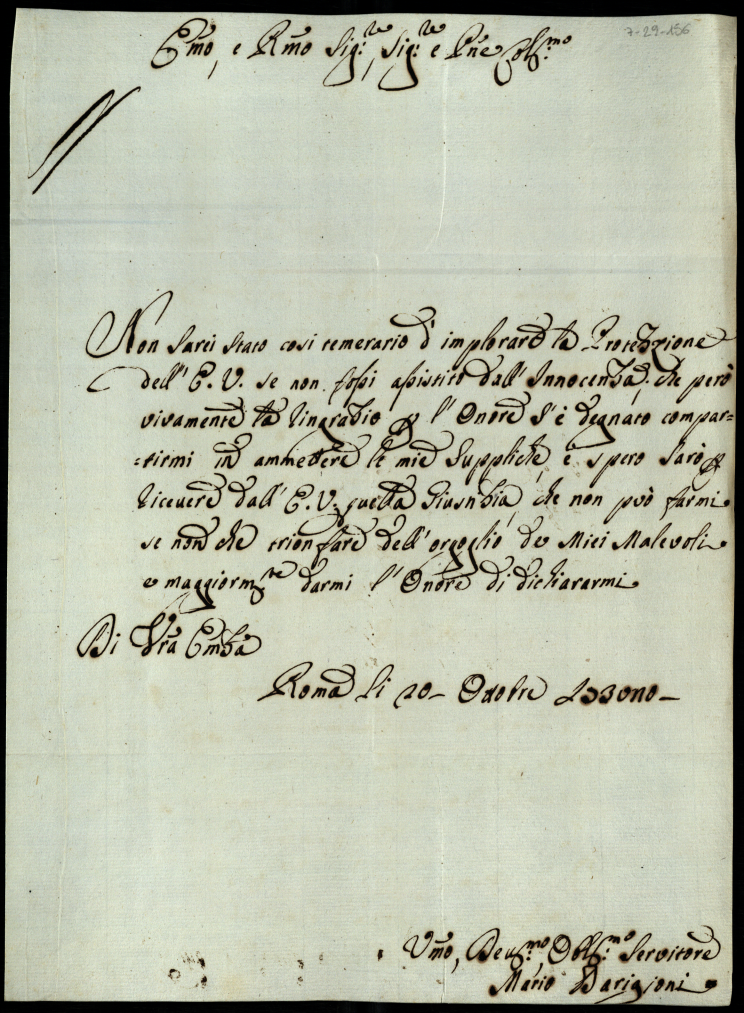 7-29-156
Emo, e Rmo Sig:re, Sig:re e Pne Col:mo
Non sarei stato cosi temerario d'implorare la Protezzione
dell' E. V. se non fossi assistito dall' Innocenza, che però
vivamente la ringrazio l'Onore s'è degnato compar=
=tirmi in ammettere le mie Suppliche, e spero sarò p
ricevere dall' E. V. quella Giustizia, che non può farmi
se non che trionfare dell' orgoglio de Miei Malevoli
e maggiorm.te darmi l'Onore di dichiararmi
Di Vra Emza
Roma li 20 Ottobre
Vmo, Deu.mo, Obl.mo Servitore
Mario Barigioni